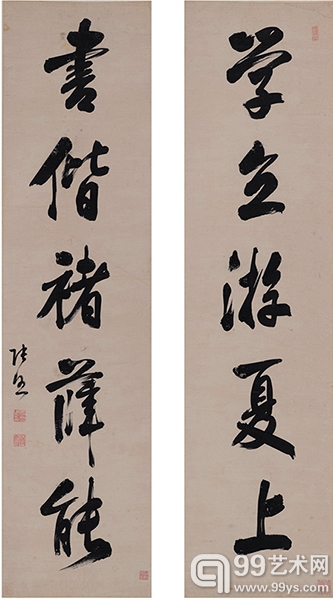 学立游夏上
書偕褚薛能
張照
99艺术网
www.99ys.com